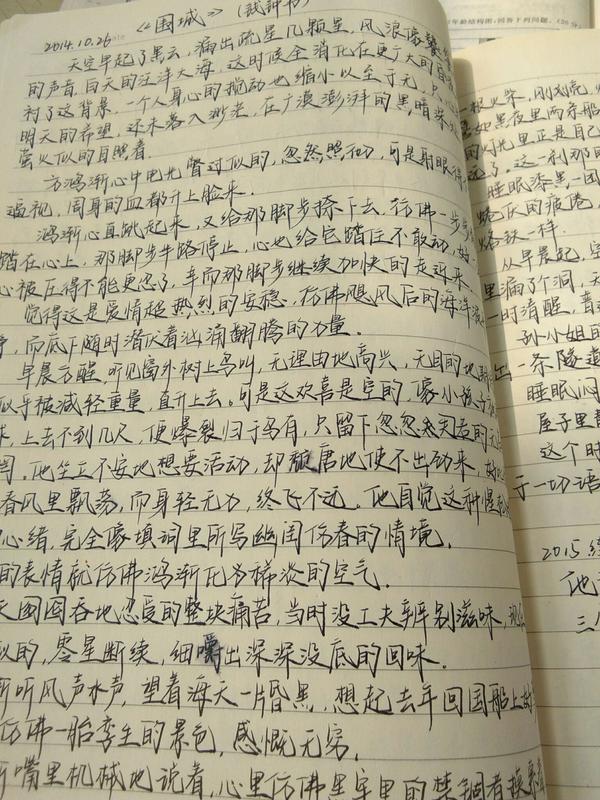 2014.10.26 《围城》 (钱钟书)
天空早起了黑云,漏出疏星几颗星,风浪像饕餮
的声音,白天的汪洋大海,这时候全消化在更广大的昏
衬了这背景,一个人身心的搅动也缩小以至于无,只
明天的希望,还未落入渺茫,在广漠澎湃的黑暗深
萤火似的自照着.
方鸿渐心中电光瞥过似的,忽然照彻,可是射眼得
逼视,周身的血都升上脸来.
鸿渐心直跳起来,又给那脚步捺下去,仿佛一步步
踏在心上,那脚步半路停止,心也给它踏住不敢动,好
心被压得不能更忍了,幸而那脚步继续加快的走近来.
觉得这是爱情超热烈的安稳,仿佛飓风后的海洋波
静,而底下随时潜伏着汹涌翻腾的力量.
早晨方醒,听见窗外树上鸟叫,无理由地高兴,无目的地期
似乎被减轻重量,直升上去。可是这欢喜是空的,像小孩子
球,上去不到几尺,便爆裂归于乌有,只留下忽忽若失的无
罔.他坐立不安地想要活动,却颓唐地使不出劲来,好
春风里飘荡,而身轻无力,终飞不远.他自觉这种惺
心绪,完全像填词里所写幽闺伤春的情境.
的表情就仿佛鸿渐化为稀淡的空气.
天囫囵吞地忍受的整块痛苦,当时没工夫辨别滋味,现
似的,零星断续,细嚼出深深没底的回味.
听风声水声,望着海天一片昏黑,想起去年回国船上
仿佛一胎孪生的景色,感慨无穷.
嘴里机械地说着,心里仿佛黑牢里的禁锢者摸索着
一根火柴,刚划亮,
黑夜里两条船
的灯光里正是自己
远了。这一刹那的
睡眠漆黑一团
烧灰的疲倦,
从早晨起,空
里漏了个洞,天
一时清醒,
孙小姐的
一条隧道
睡眠
屋子里
这个时
于一切语
2015
他
三
年龄结构图,回答下列问题。